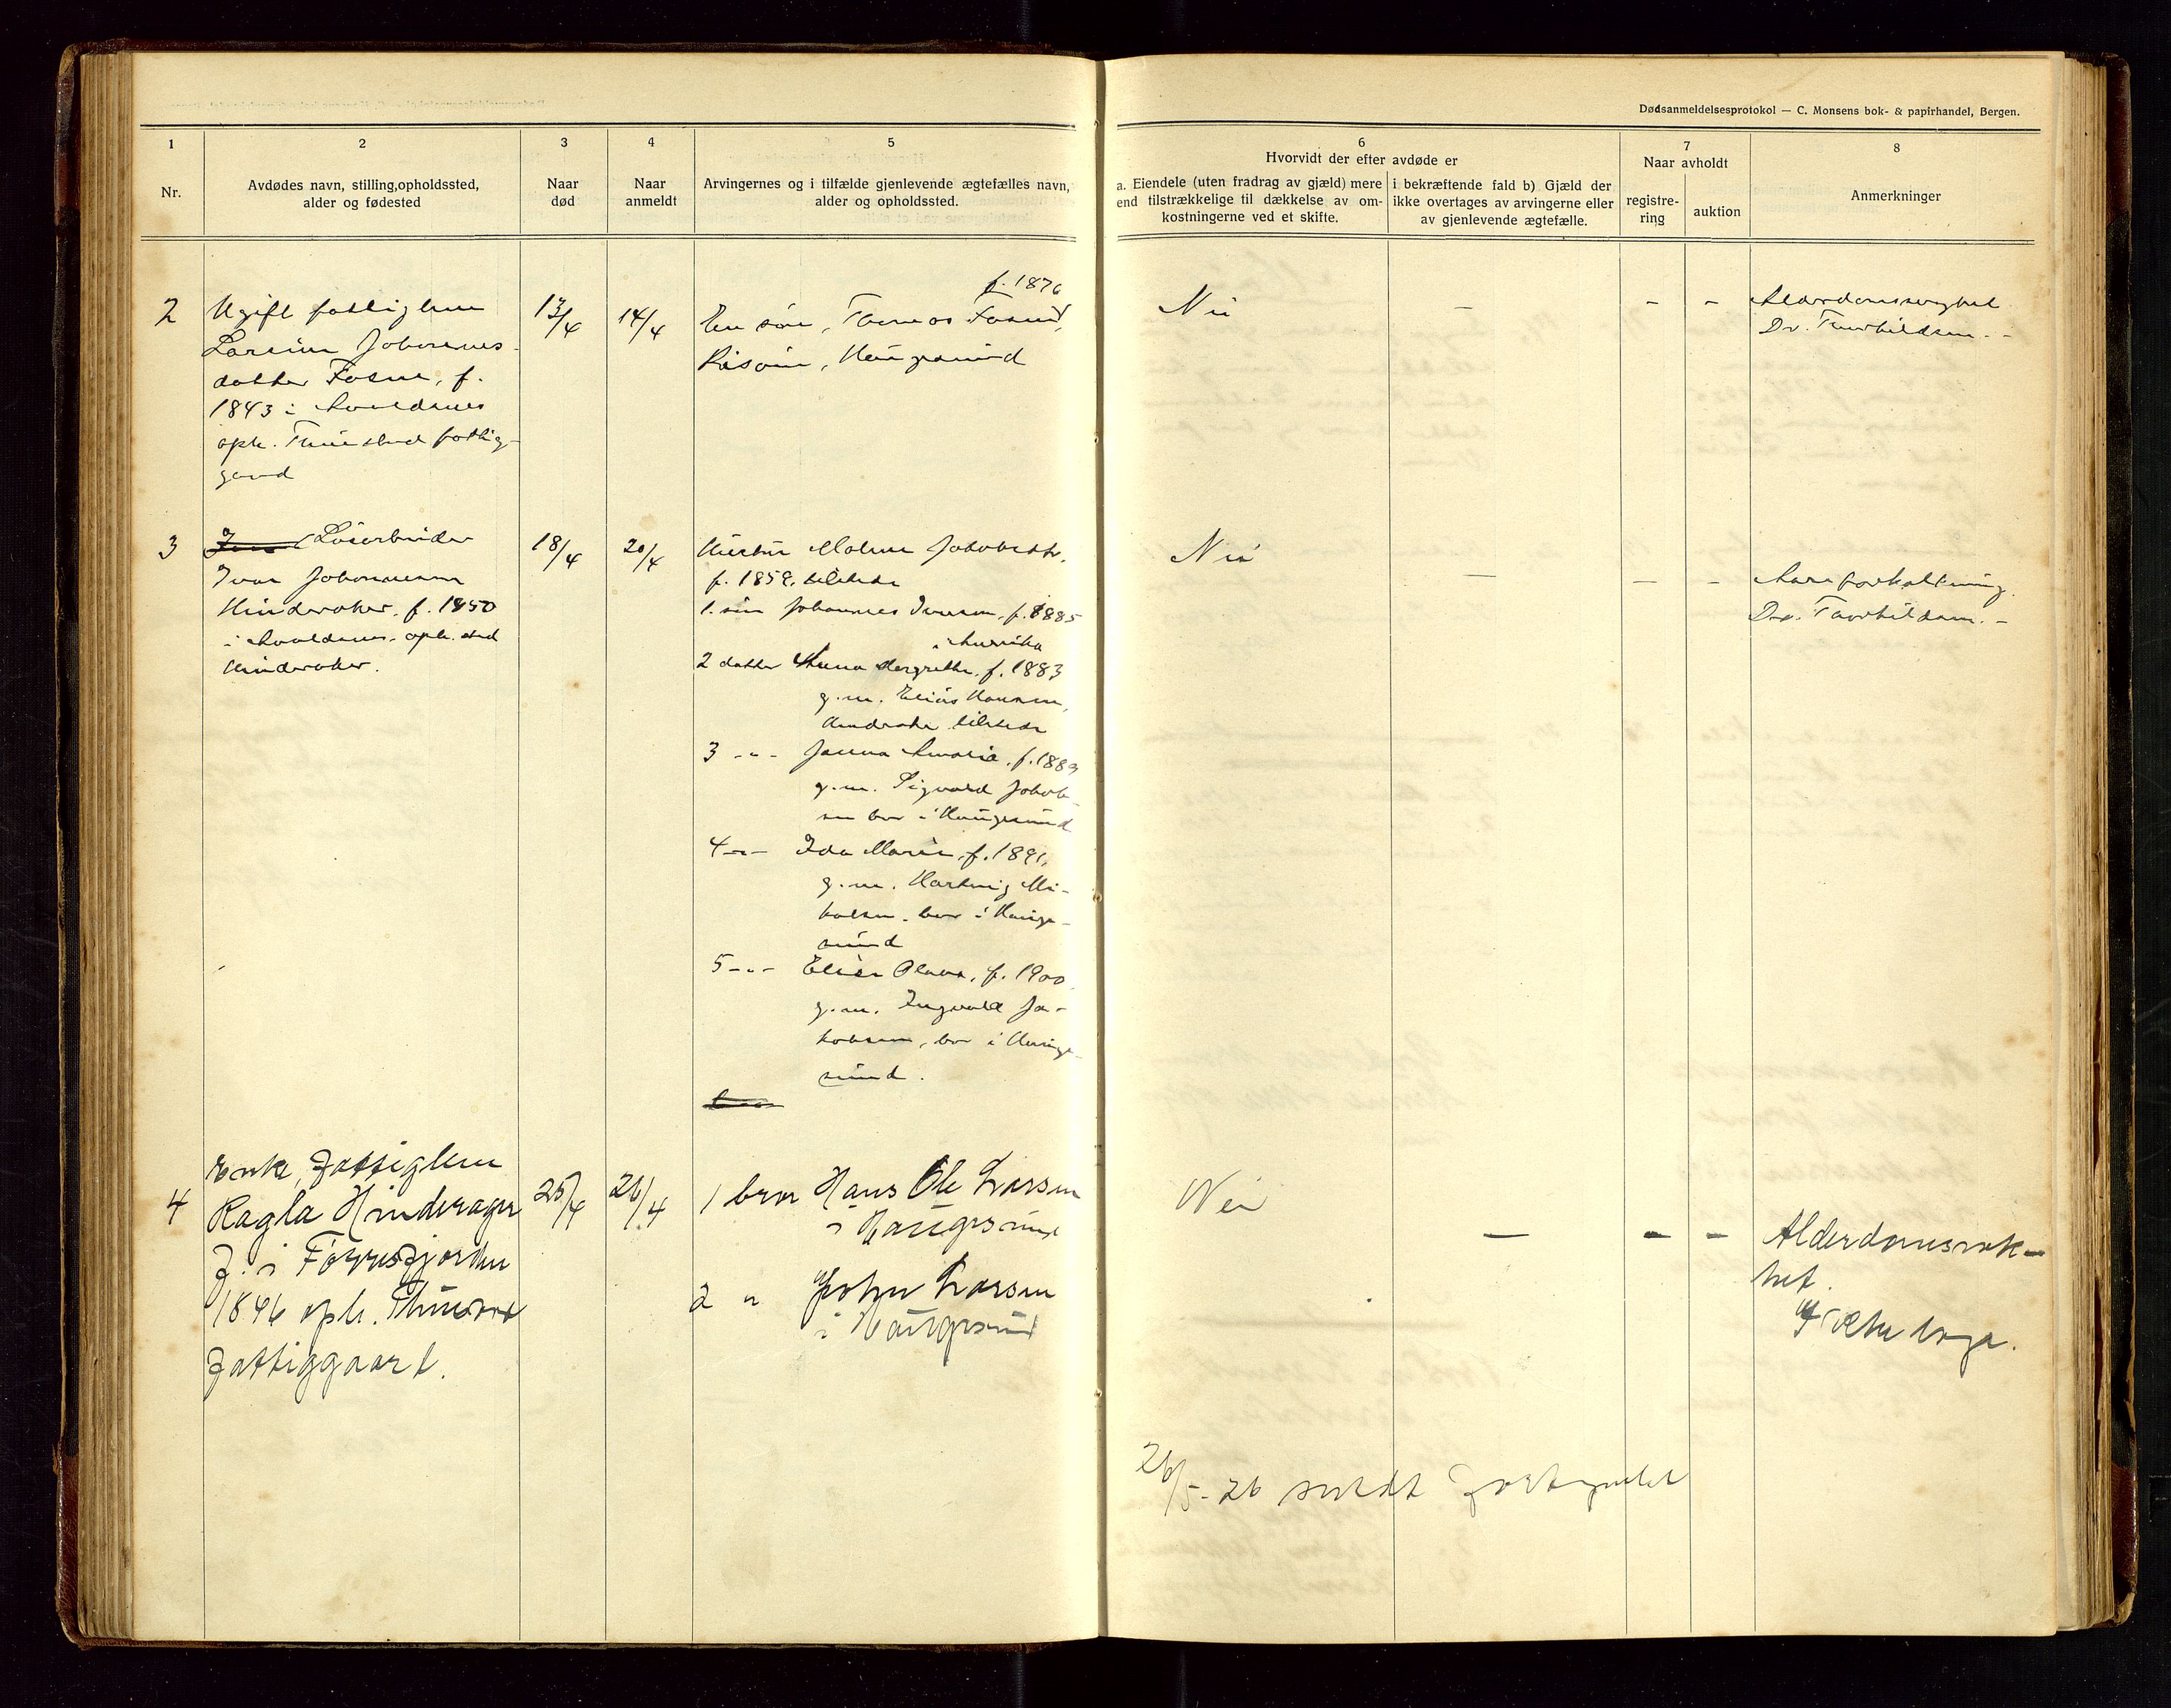 Dødsanmeldelsesprotokol — C. Monsens bok- & papirhandel, Bergen.
1
Nr.
2
Avdødes navn, stilling,opholdssted,
alder og fødested
3
Naar
død
4
Naar
anmeldt
5
Arvingernes og i tilfælde gjenlevende ægtefælles navn,
alder og opholdssted.
6
Hvorvidt der efter avdøde er
a. Eiendele (uten fradrag av gjæld) mere
end tilstrækkelige til dækkelse av om-
kostningerne ved et skifte.
i bekræftende fald b) Gjæld der
ikke overtages av arvingerne eller
av gjenlevende ægtefælle.
7
Naar avholdt
registre-
ring
auktion
8
Anmerkninger
2
Ugift fattiglem
Larsine Johannes-
datter Fosne, f.
1843 i Avaldsnes
oph. fattig-
gaard
13/4
14/4
f. 1876
En søn, Thomas Fosne,
Risøen, Haugesund
Nei
-
-
-
Alderdomssvaghet
Dr. Thorkildsen.
3
Løserbruker
Ivar Johannesen
Hinderaker, f. 1850
i Avaldsnes, oph. sted
Hinderaker.
18/4
20/4
Hustru Malene Jakobsdtr.
f. 1859, tilstede
1. søn Johannes Iversen, f. 1885
i Amerika
2 datter Anna Margrethe, f. 1883
g.m. Elias Hansen,
Hinderaker tilstede
3 -"- Janna Amalia, f. 1889
g.m. Sigvald Jakob-
sen bor i Haugesund
4 -"- Ida Marie, f. 1891,
g.m. Hartvig Mi-
kalsen, bor i Hauge-
sund
5 -"- Elise Olava, f. 1900
g.m. Ingvald Ja-
kobsen, bor i Hauge-
sund.
Nei
-
-
-
Aareforkalkning.
Dr. Thorkildsen. -
4
Enke, Fattiglem
Ragla Hinderager
f. i Førresfjorden
1846 oph.
Fattiggaard.
25/4
26/4
1 bror Hans Ole Larsen
i Haugesund
2 " John Larsen
i Haugesund
Nei
-
-
-
Alderdomsvak-
het.
26/5-26 sendt